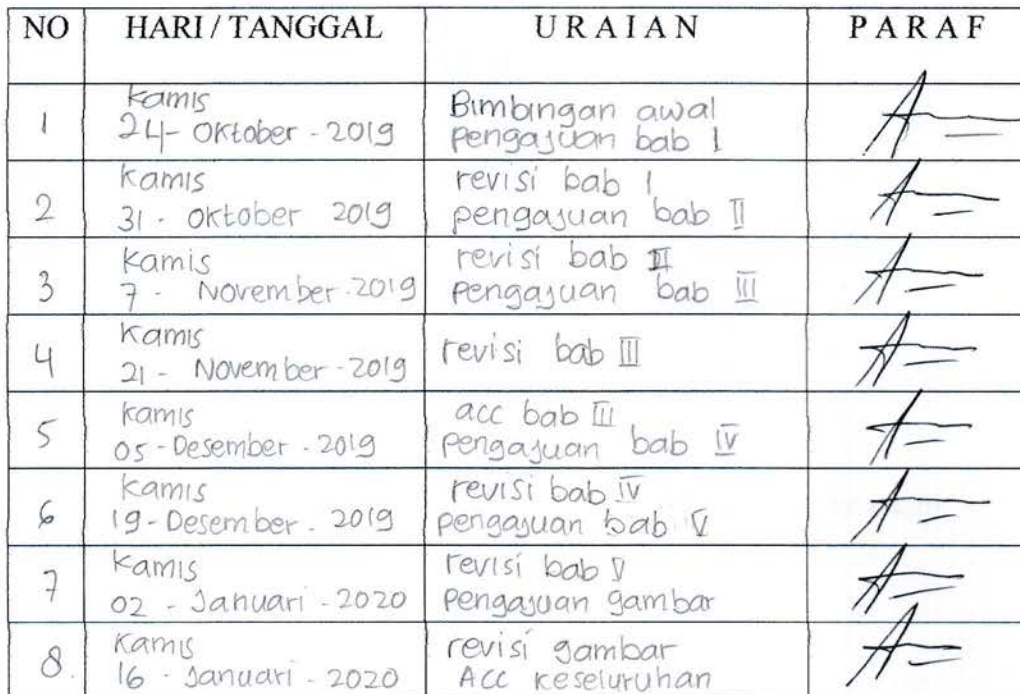 NO HARI / TANGGAL URAIAN PARAF
1 Kamis
24 - Oktober - 2019
Bimbingan awal
pengajuan bab I
2 Kamis
31 - Oktober 2019
revisi bab I
pengajuan bab II
3 Kamis
7 - November - 2019
revisi bab II
pengajuan bab III
4 Kamis
21 - November - 2019
revisi bab III
5 Kamis
05 - Desember - 2019
acc bab III
pengajuan bab IV
6 Kamis
19 - Desember - 2019
revisi bab IV
pengajuan bab V
7 Kamis
02 - Januari - 2020
revisi bab V
Pengajuan gambar
8. Kamis
16 - Januari - 2020
revisi gambar
Acc keseluruhan